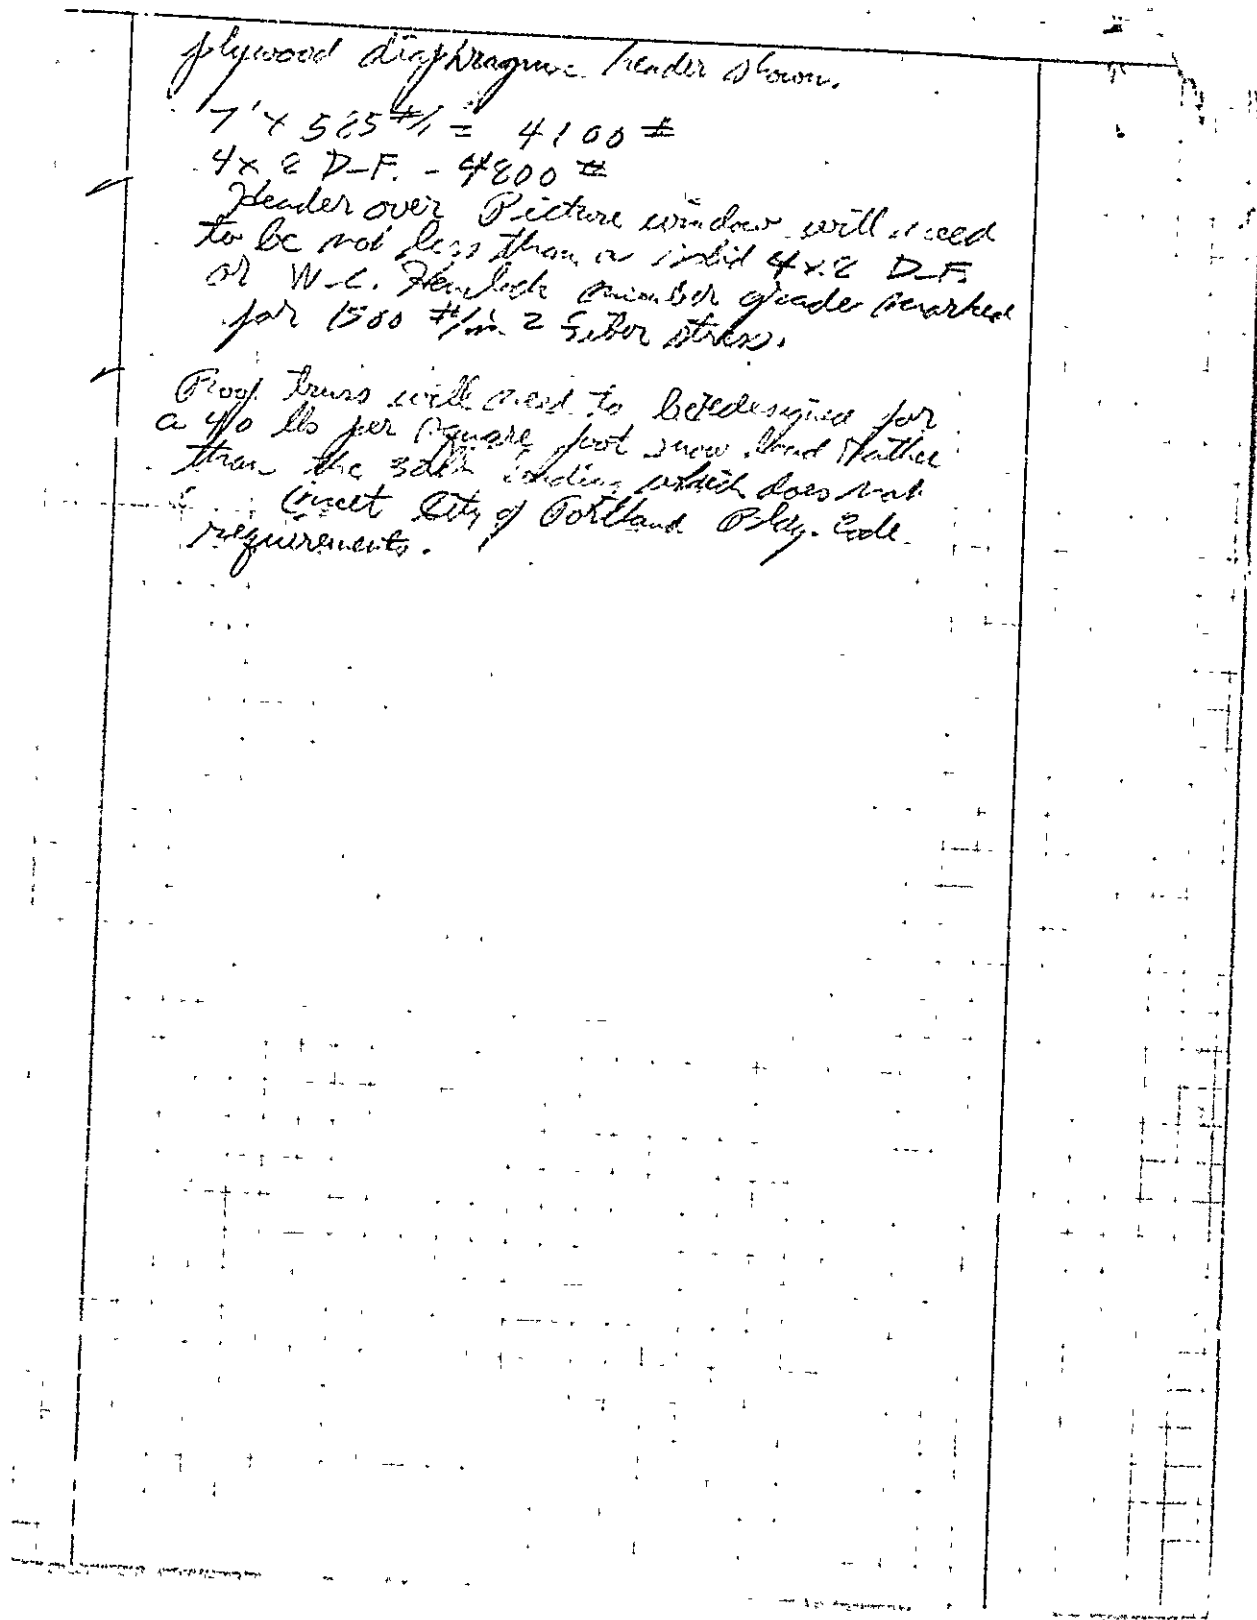 plywood diaphragm header shown.
7' x 585 #/' = 4100 #
4x8 D-F. - 4800 #
Header over Picture window will need
to be not less than a solid 4x8 D-F.
or W-C. Hemlock member grade marked
for 1500 #/in 2 fiber stress.
Roof truss will need to be redesigned for
a 40 lb per square foot snow load rather
than the loading which does not
meet City of Portland Bldg. Code
requirements.